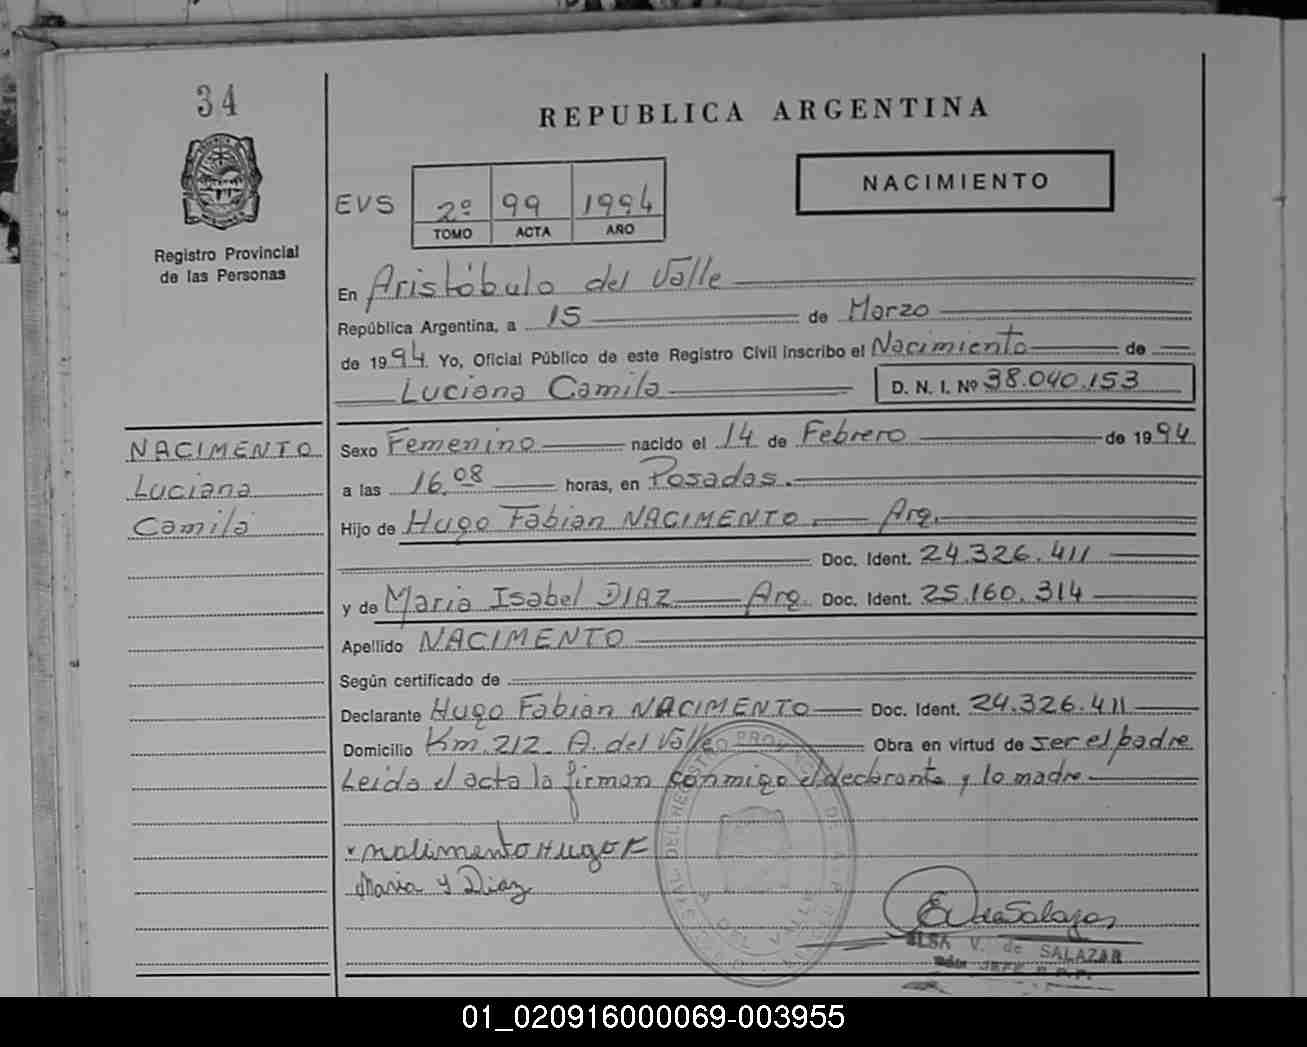 34
Registro Provincial
de las Personas
REPUBLICA ARGENTINA
NACIMIENTO
EVS 2º 99 1994
TOMO ACTA AÑO
En Aristóbulo del Valle
República Argentina, a 15 de Marzo
de 1994. Yo, Oficial Público de este Registro Civil inscribo el Nacimiento de
Luciana Camila D. N. I. Nº 38.040.153
NACIMENTO
Luciana
Camila
Sexo Femenino nacido el 14 de Febrero de 1994
a las 16.08 horas, en Posadas.
Hijo de Hugo Fabian NACIMENTO. Arg.
Doc. Ident. 24.326.411
y de Maria Isabel DIAZ Arg. Doc. Ident. 25.160.314
Apellido NACIMENTO
Según certificado de
Declarante Hugo Fabian NACIMENTO Doc. Ident. 24.326.411
Domicilio Km. 212. A. del Valle Obra en virtud de ser el padre
Leida el acta la firman conmigo el declarante y la madre
Nacimento Hugo F
Maria I Diaz
E V de Salazar
ELSA V. de SALAZAR
01_020916000069-003955